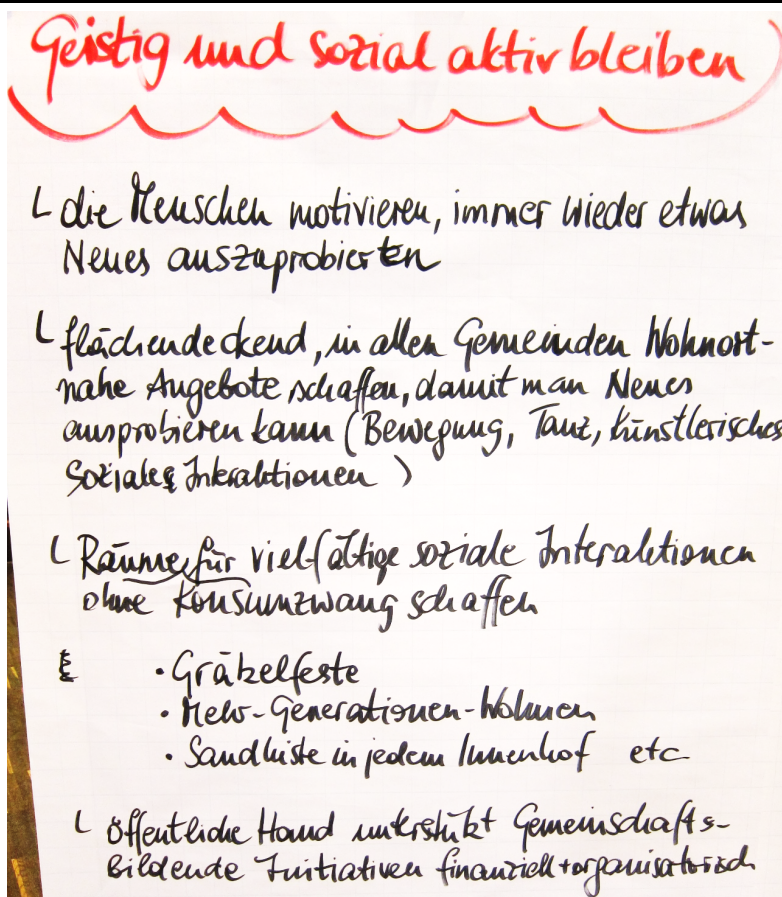 Geistig und sozial aktiv bleiben
└ die Menschen motivieren, immer wieder etwas
Neues auszuprobierten
└ flächendeckend, in allen Gemeinden Wohnort-
nahe Angebote schaffen, damit man Neues
ausprobieren kann (Bewegung, Tanz, künstlerisches
Soziales Interaktionen )
└ Räume für vielfältige soziale Interaktionen
ohne Konsumzwang schaffen
• Grätzelfeste
• Mehr-Generationen-Wohnen
• Sandkiste in jedem Innenhof etc
└ öffentliche Hand unterstützt Gemeinschafts-
Bildende Initiativen finanziell + organisatorisch